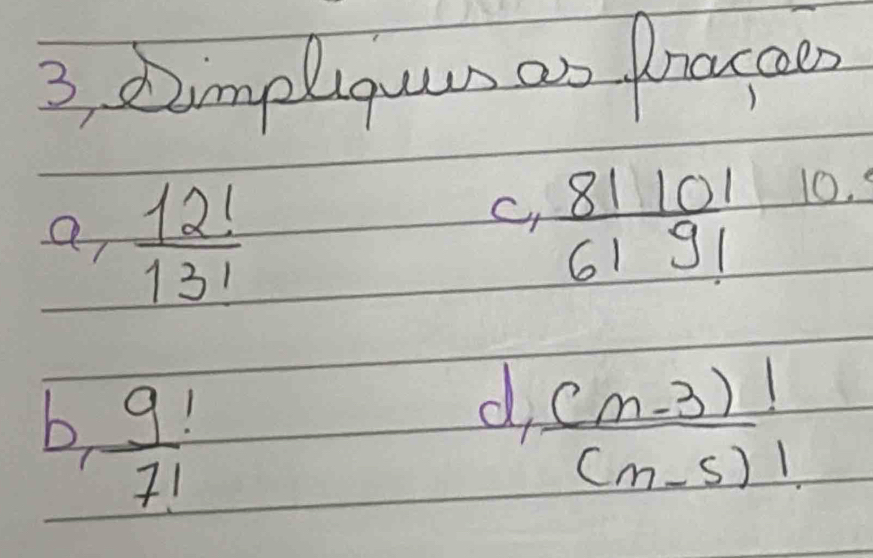 3, Simpliques as fraçoes
a, 12! / 13!
c, 8! 10! / 6! 9!
10.
b, 9! / 7!
d, (n-3)! / (n-5)!